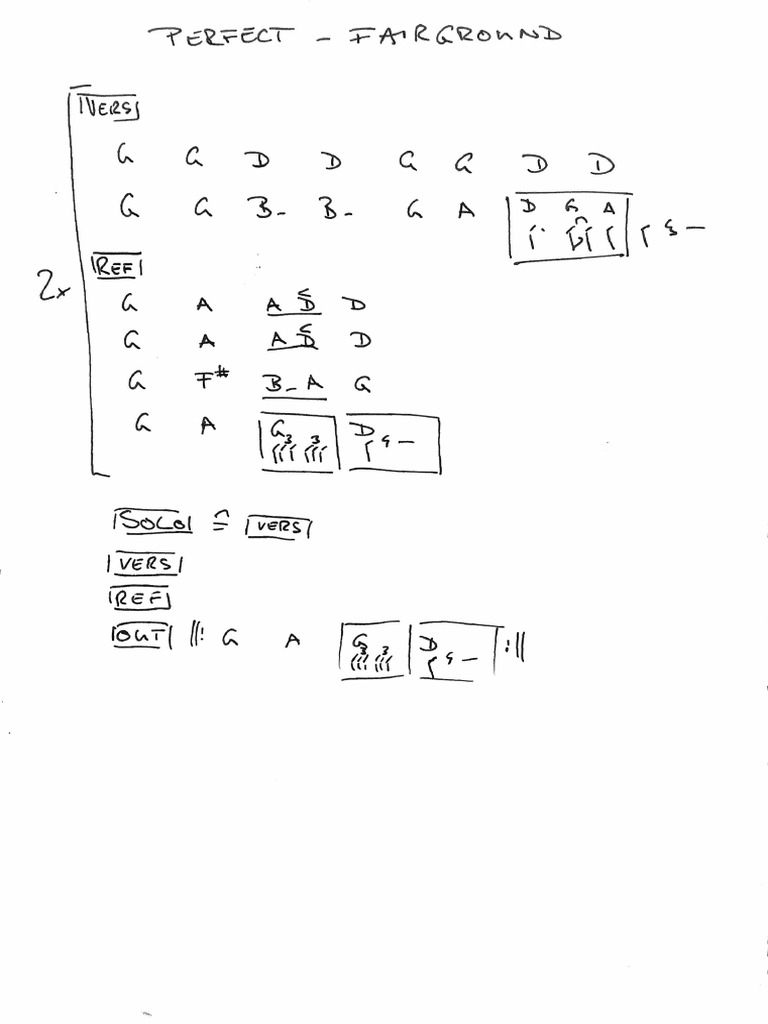 PERFECT – FAIRGROUND
VERS
G G D D G G D D
G G B- B- G A D G A
2x
REF
G A A D D
G A A D D
G F# B- A G
G A G 3 3 D
SOLO ≙ VERS
VERS
REF
OUT ||: G A G 3 3 D :||